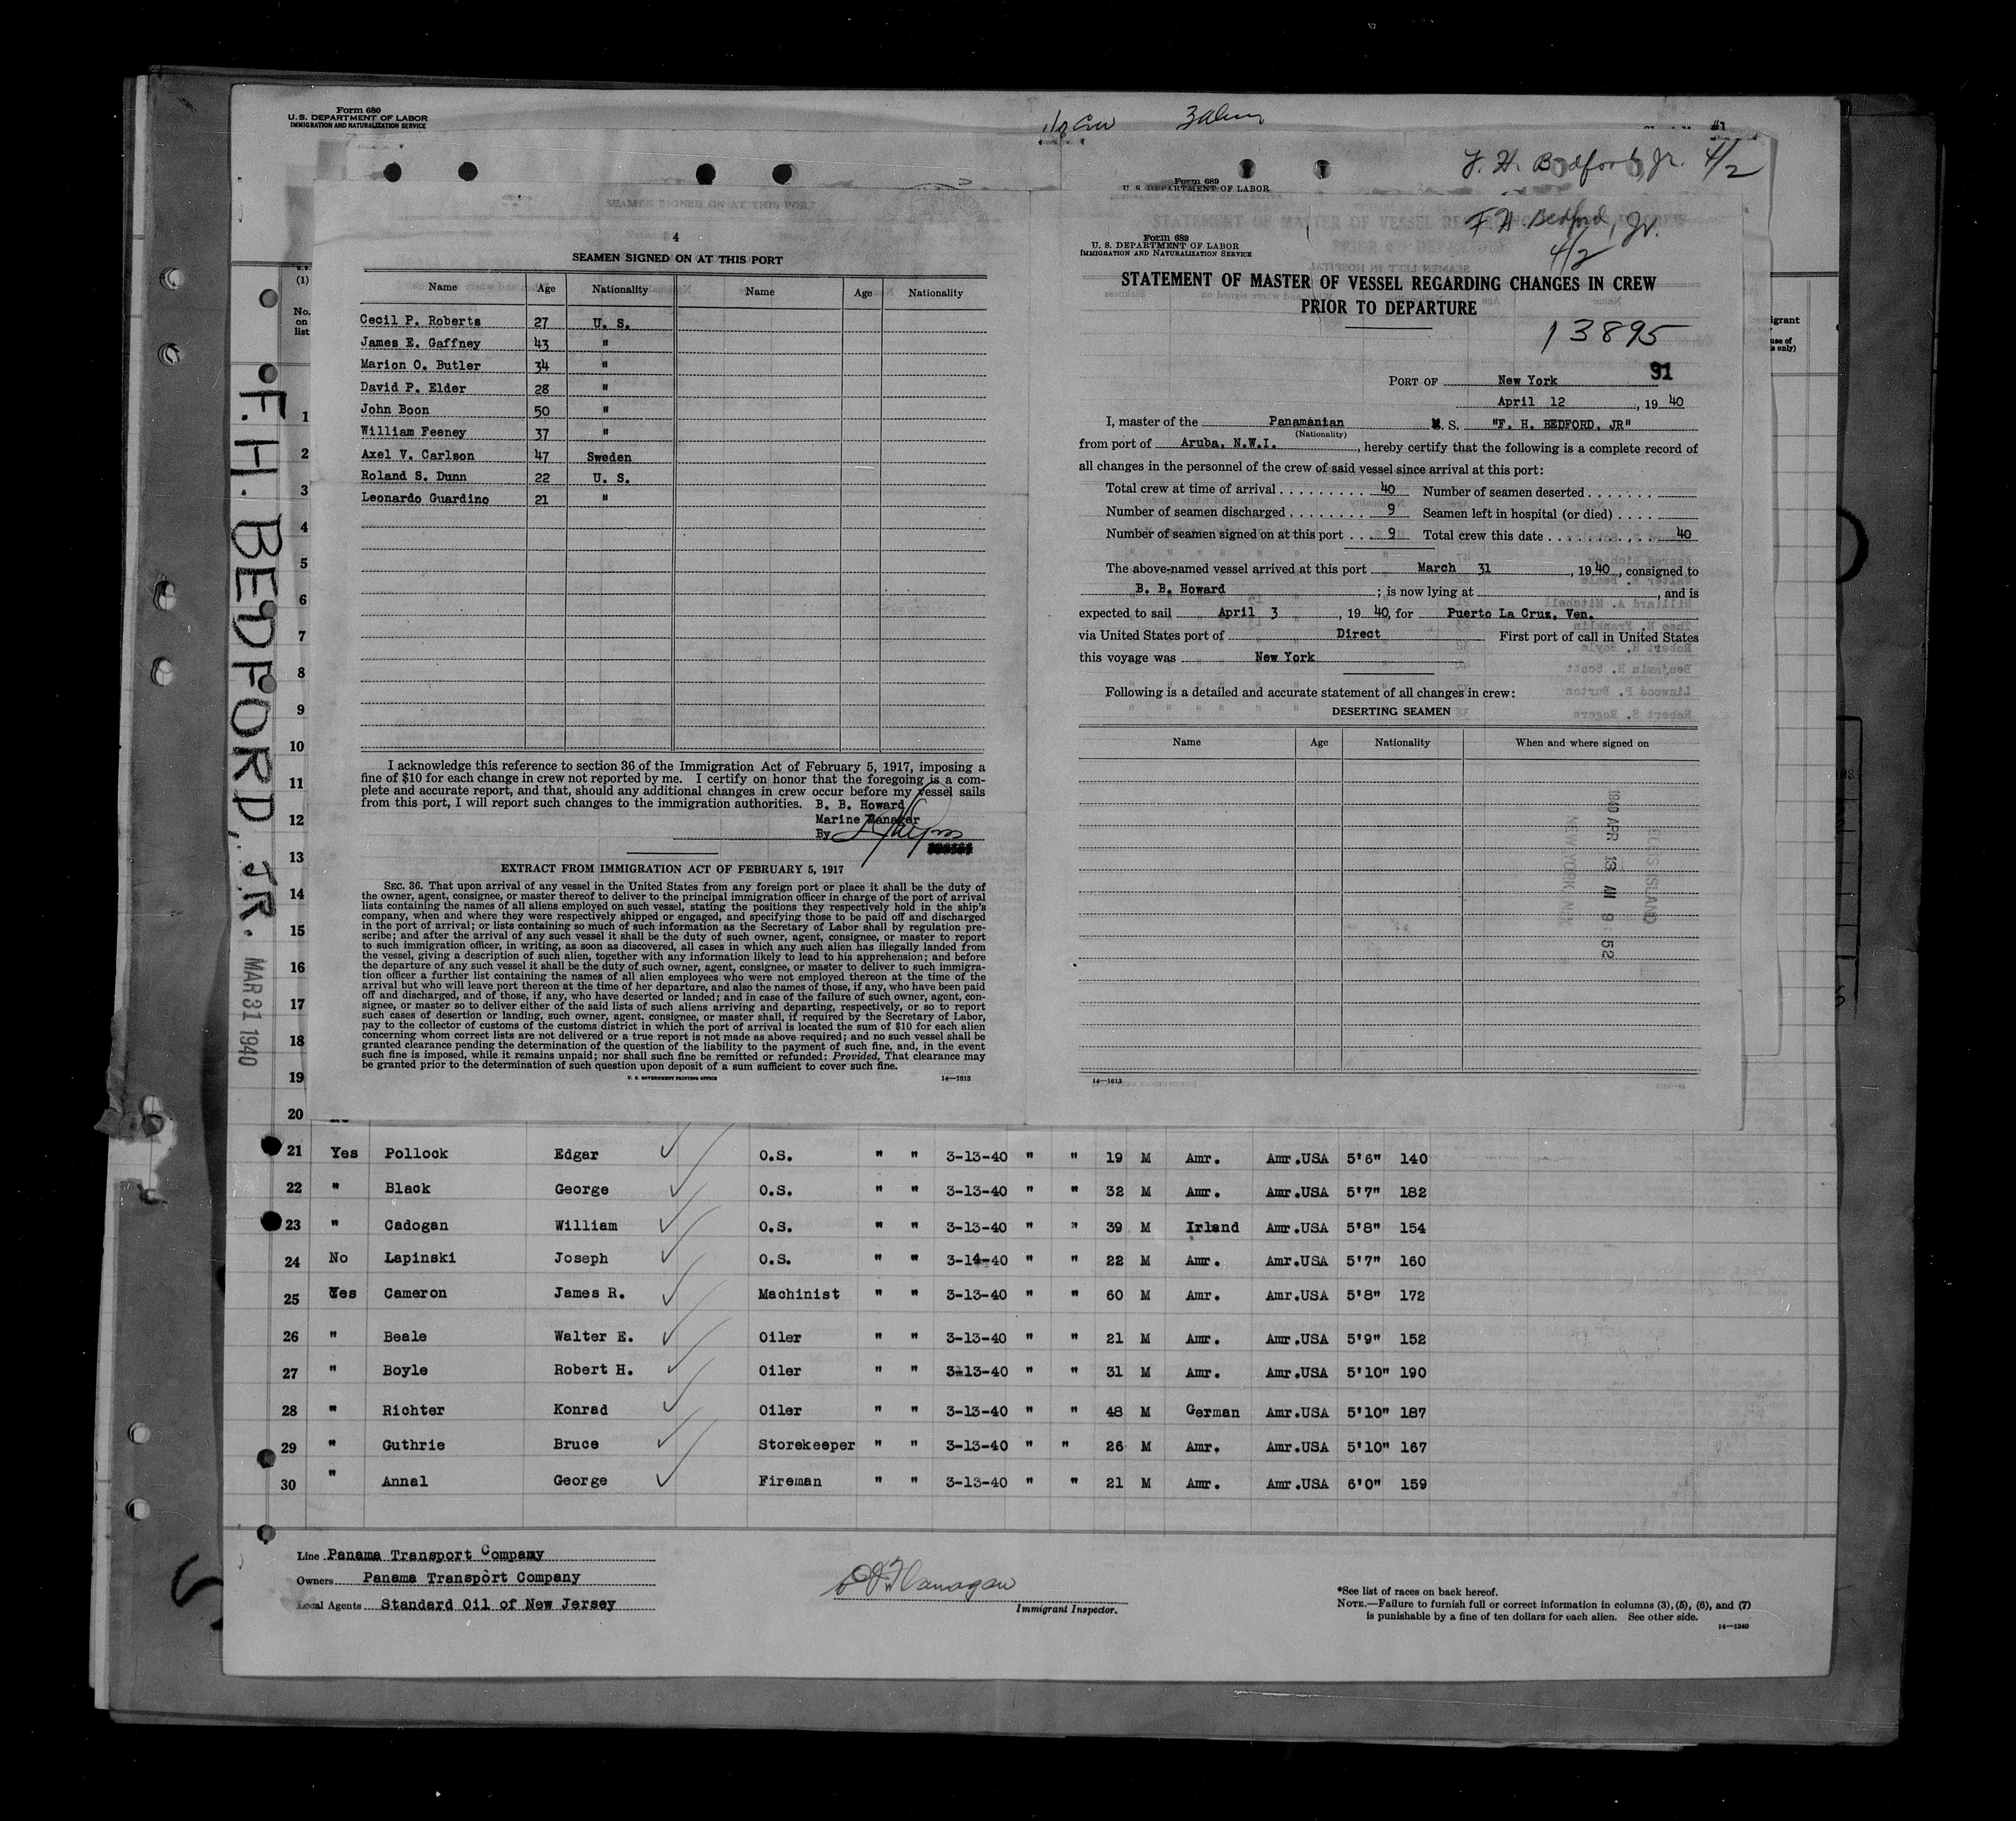 Form 689
U. S. DEPARTMENT OF LABOR
IMMIGRATION AND NATURALIZATION SERVICE
#1
F. H. Bedford, Jr. 4/2
Form 689
U. S. DEPARTMENT OF LABOR
4
SEAMEN SIGNED ON AT THIS PORT
Name Age Nationality Name Age Nationality
Cecil P. Roberts 27 U. S.
James E. Gaffney 43 "
Marion O. Butler 34 "
David P. Elder 28 "
John Boon 50 "
William Feeney 37 "
Axel V. Carlson 47 Sweden
Roland S. Dunn 22 U. S.
Leonardo Guardino 21 "
I acknowledge this reference to section 36 of the Immigration Act of February 5, 1917, imposing a
fine of $10 for each change in crew not reported by me. I certify on honor that the foregoing is a com-
plete and accurate report, and that, should any additional changes in crew occur before my vessel sails
from this port, I will report such changes to the immigration authorities. B. B. Howard
Marine Manager
By
EXTRACT FROM IMMIGRATION ACT OF FEBRUARY 5, 1917
SEC. 36. That upon arrival of any vessel in the United States from any foreign port or place it shall be the duty of
the owner, agent, consignee, or master thereof to deliver to the principal immigration officer in charge of the port of arrival
lists containing the names of all aliens employed on such vessel, stating the positions they respectively hold in the ship's
company, when and where they were respectively shipped or engaged, and specifying those to be paid off and discharged
in the port of arrival; or lists containing so much of such information as the Secretary of Labor shall by regulation pre-
scribe; and after the arrival of any such vessel it shall be the duty of such owner, agent, consignee, or master to report
to such immigration officer, in writing, as soon as discovered, all cases in which any such alien has illegally landed from
the vessel, giving a description of such alien, together with any information likely to lead to his apprehension; and before
the departure of any such vessel it shall be the duty of such owner, agent, consignee, or master to deliver to such immigra-
tion officer a further list containing the names of all alien employees who were not employed thereon at the time of the
arrival but who will leave port thereon at the time of her departure, and also the names of those, if any, who have been paid
off and discharged, and of those, if any, who have deserted or landed; and in case of the failure of such owner, agent, con-
signee, or master so to deliver either of the said lists of such aliens arriving and departing, respectively, or so to report
such cases of desertion or landing, such owner, agent, consignee, or master shall, if required by the Secretary of Labor,
pay to the collector of customs of the customs district in which the port of arrival is located the sum of $10 for each alien
concerning whom correct lists are not delivered or a true report is not made as above required; and no such vessel shall be
granted clearance pending the determination of the question of the liability to the payment of such fine, and, in the event
such fine is imposed, while it remains unpaid; nor shall such fine be remitted or refunded: Provided, That clearance may
be granted prior to the determination of such question upon deposit of a sum sufficient to cover such fine.
U. S. GOVERNMENT PRINTING OFFICE 14—1613
F. H. Bedford, Jr.
4/2
Form 689
U. S. DEPARTMENT OF LABOR
IMMIGRATION AND NATURALIZATION SERVICE
STATEMENT OF MASTER OF VESSEL REGARDING CHANGES IN CREW
PRIOR TO DEPARTURE
13895
31
PORT OF New York
April 12, 19 40
I, master of the Panamanian M. S. "F. H. BEDFORD, JR"
(Nationality)
from port of Aruba, N.W.I., hereby certify that the following is a complete record of
all changes in the personnel of the crew of said vessel since arrival at this port:
Total crew at time of arrival . . . . . . . . . 40 Number of seamen deserted . . . . . . .
Number of seamen discharged . . . . . . . . 9 Seamen left in hospital (or died) . . . .
Number of seamen signed on at this port . . . 9 Total crew this date . . . . . . . . . . . 40
The above-named vessel arrived at this port March 31, 19 40, consigned to
B. B. Howard ; is now lying at , and is
expected to sail April 3, 19 40, for Puerto La Cruz, Ven.
via United States port of Direct First port of call in United States
this voyage was New York
Following is a detailed and accurate statement of all changes in crew:
DESERTING SEAMEN
Name Age Nationality When and where signed on
ELLIS ISLAND
1940 APR 13 AM 9:52
NEW YORK, N.Y.
14—1613
F. H. BEDFORD, JR. MAR 31 1940
(1)
No.
on
list
1
2
3
4
5
6
7
8
9
10
11
12
13
14
15
16
17
18
19
20
21 Yes Pollock Edgar O.S. " " 3-13-40 " " 19 M Amr. Amr.USA 5'6" 140
22 " Black George O.S. " " 3-13-40 " " 32 M Amr. Amr.USA 5'7" 182
23 " Cadogan William O.S. " " 3-13-40 " " 39 M Irland Amr.USA 5'8" 154
24 No Lapinski Joseph O.S. " " 3-14-40 " " 22 M Amr. Amr.USA 5'7" 160
25 Yes Cameron James R. Machinist " " 3-13-40 " " 60 M Amr. Amr.USA 5'8" 172
26 " Beale Walter E. Oiler " " 3-13-40 " " 21 M Amr. Amr.USA 5'9" 152
27 " Boyle Robert H. Oiler " " 3-13-40 " " 31 M Amr. Amr.USA 5'10" 190
28 " Richter Konrad Oiler " " 3-13-40 " " 48 M German Amr.USA 5'10" 187
29 " Guthrie Bruce Storekeeper " " 3-13-40 " " 26 M Amr. Amr.USA 5'10" 167
30 " Annal George Fireman " " 3-13-40 " " 21 M Amr. Amr.USA 6'0" 159
Line Panama Transport Company
Owners Panama Transport Company
Local Agents Standard Oil of New Jersey
Flanagan
Immigrant Inspector.
*See list of races on back hereof.
NOTE.—Failure to furnish full or correct information in columns (3), (5), (6), and (7)
is punishable by a fine of ten dollars for each alien. See other side.
14—1240